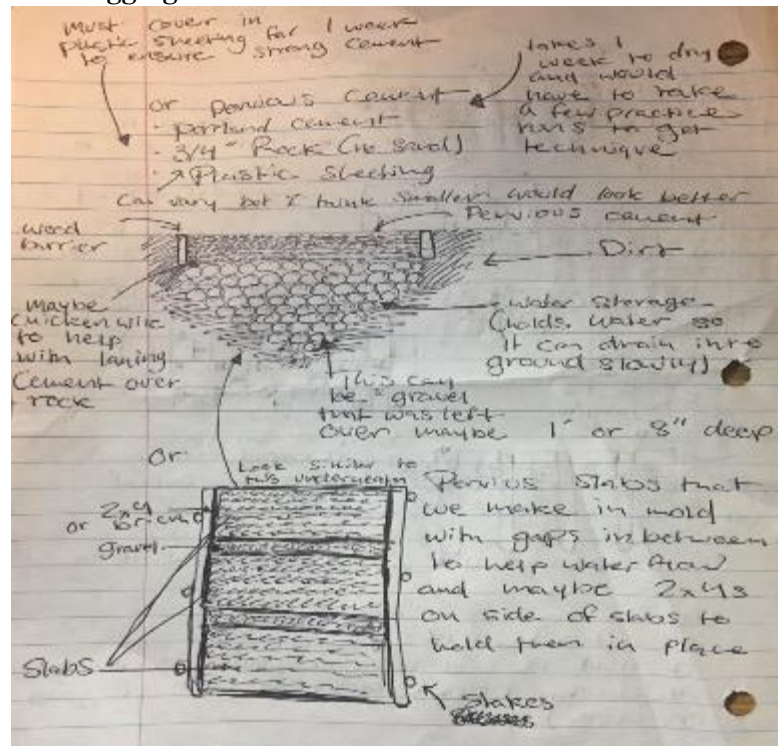 must cover in
plastic sheeting for 1 week
to ensure strong cement
takes 1
week to dry
and would
have to take
a few practice
runs to get
technique
or Pervious Cement
- portland cement
- 3/4" Rock (no sand)
- Plastic Sheeting
Can vary but I think smaller would look better
Pervious cement
wood
barrier
Dirt
maybe
chicken wire
to help
with laying
Cement over
rock
water storage
(holds water so
it can drain into
ground slowly)
This can
be gravel
that was left
over maybe 1' or 8" deep
or
Look similar to
this underneath
or 2x4
gravel
Slabs
Pervius Slabs that
we make in mold
with gaps in between
to help water flow
and maybe 2x4s
on side of slabs to
hold them in place
Stakes